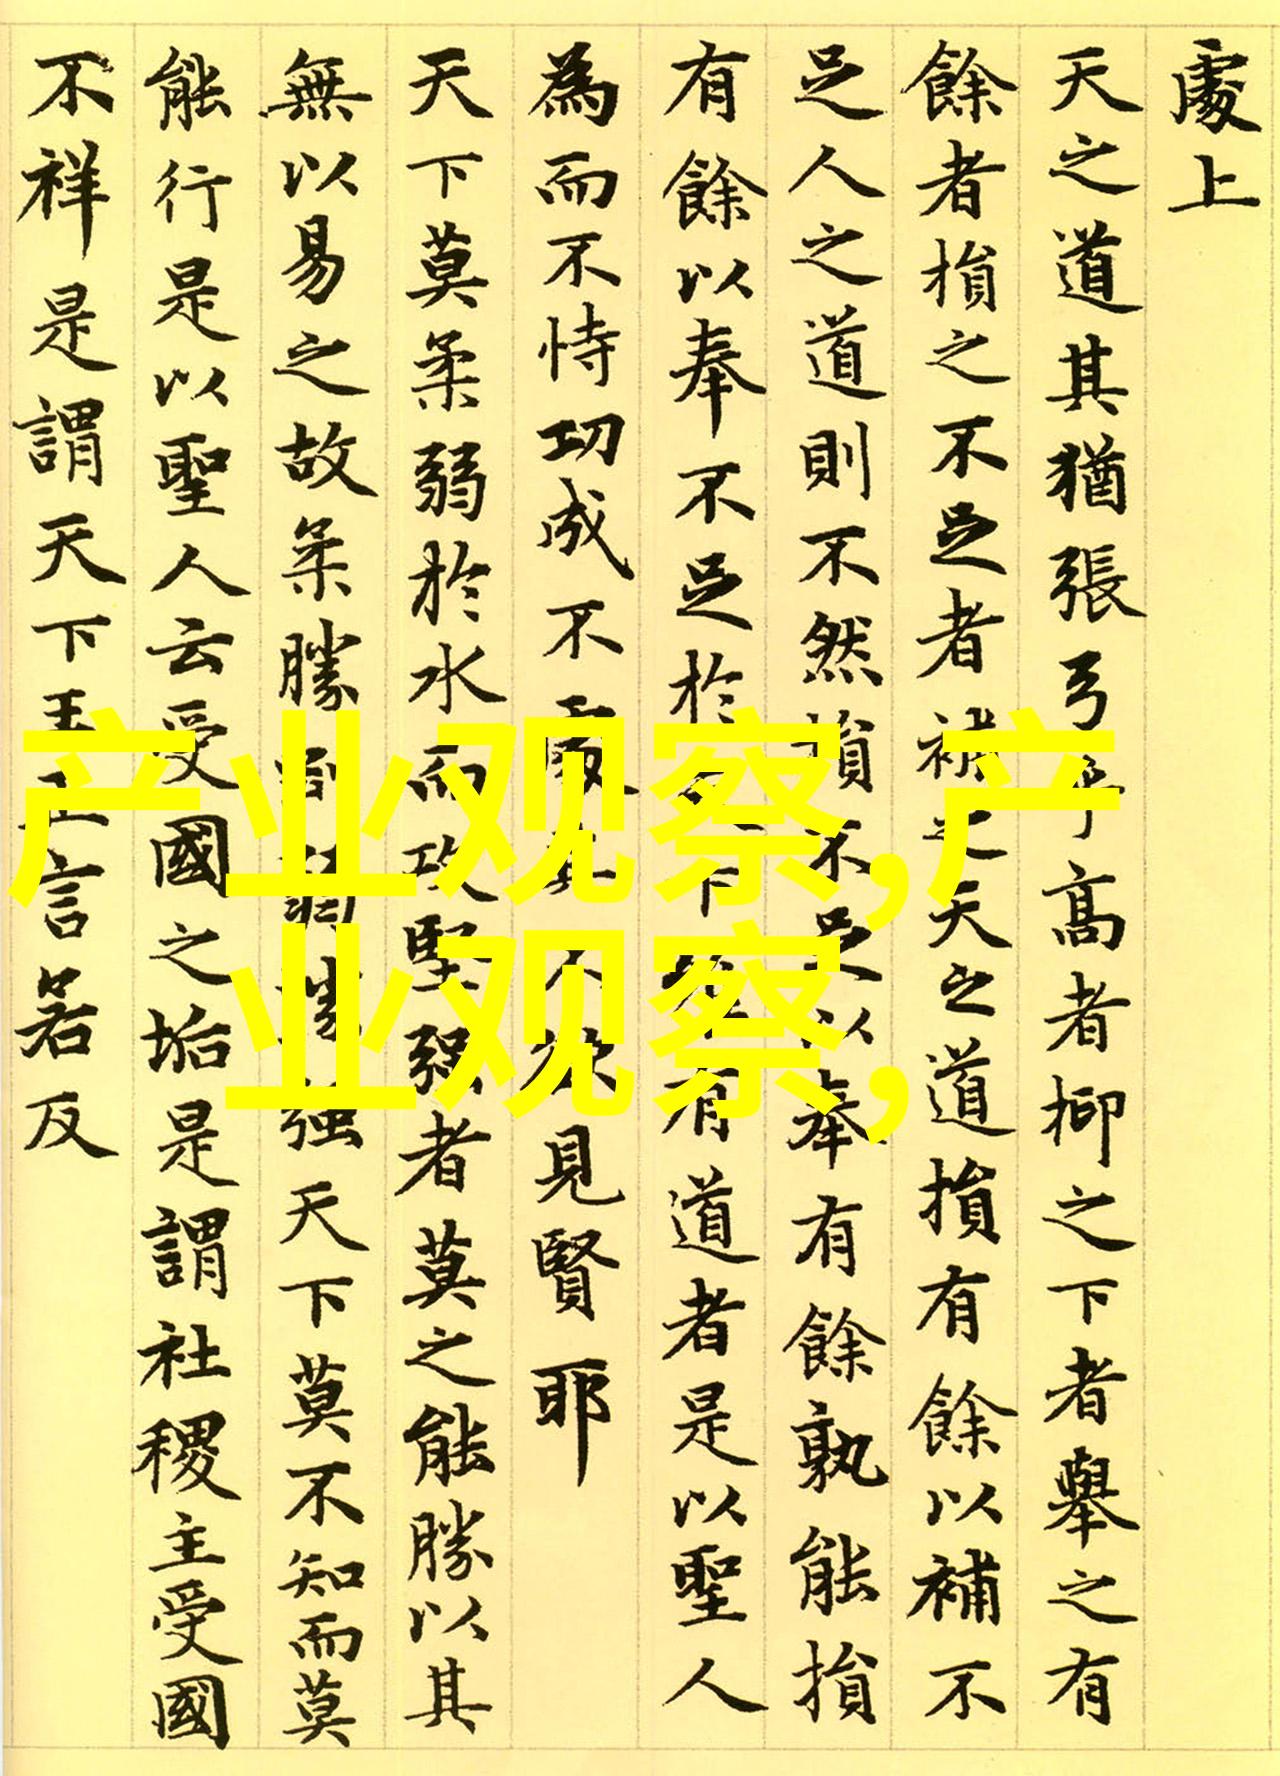 處上
天之道其猶張弓乎高者抑之下者舉之有
餘者損之不足者補之天之道損有餘以補不
足人之道則不然損不足以奉有餘孰能損
有餘以奉不足於天下唯有道者是以聖人
為而不恃功成不處其不欲見賢耶
天下莫柔弱於水而攻堅強者莫之能勝以其
無以易之故柔勝剛弱勝強天下莫不知而莫
能行是以聖人云受國之垢是謂社稷主受國
不祥是謂天下王正言若反
产业观察,产
业观察,